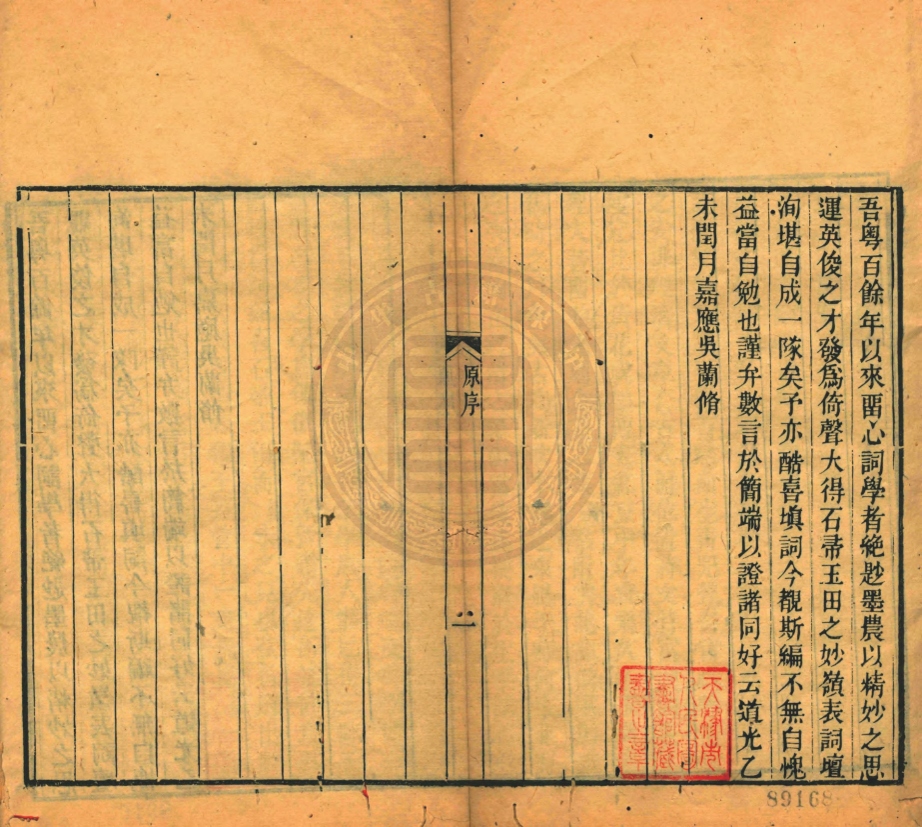 吾粵百餘年以來畱心詞學者絶尠墨農以精妙之思
運英俊之才發爲倚聲大得石帚玉田之妙嶺表詞壇
洵堪自成一隊矣予亦酷喜填詞今覩斯編不無自愧
益當自勉也謹弁數言於簡端以證諸同好云道光乙
未閏月嘉應吳蘭脩
原序
二
天津市
人民圖
書館藏
書之章
89168